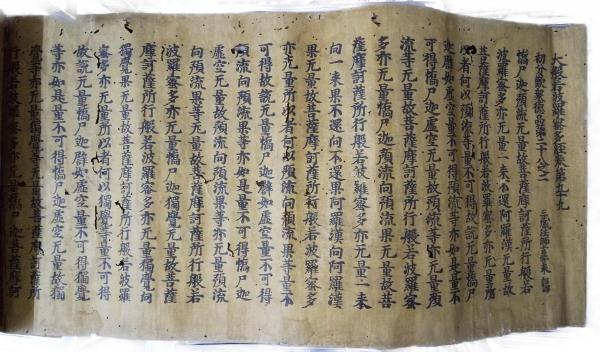 大般若波羅蜜多經卷第九十九
初分歎衆德品第二十八之二
三藏法師玄奘奉 詔譯
憍尸迦預流无量故菩薩摩訶薩所行般若
波羅蜜多亦无量一來不還阿羅漢无量故
菩薩摩訶薩所行般若波羅蜜多亦无量所
以者何以預流等量不可得故說无量憍尸
迦譬如虛空量不可得預流等亦如是量不
可得憍尸迦虛空无量故預流等亦无量預
流等无量故菩薩摩訶薩所行般若波羅蜜
多亦无量憍尸迦預流向預流果无量故菩
薩摩訶薩所行般若波羅蜜多亦无量一來
向一來果不還向不還果阿羅漢向阿羅漢
果无量故菩薩摩訶薩所行般若波羅蜜多
亦无量所以者何以預流向預流果等量不
可得故說无量憍尸迦譬如虛空量不可得
預流向預流果等亦如是量不可得憍尸迦
虛空无量故預流向預流果等亦无量預流
向預流果等无量故菩薩摩訶薩所行般若
波羅蜜多亦无量憍尸迦獨覺无量故菩薩
摩訶薩所行般若波羅蜜多亦无量獨覺向
獨覺果无量故菩薩摩訶薩所行般若波羅
蜜多亦无量所以者何以獨覺等量不可得
故說无量憍尸迦譬如虛空量不可得獨覺
等亦如是量不可得憍尸迦虛空无量故獨
覺等亦无量獨覺等无量故菩薩摩訶薩所
行般若波羅蜜多亦无量憍尸迦菩薩摩訶